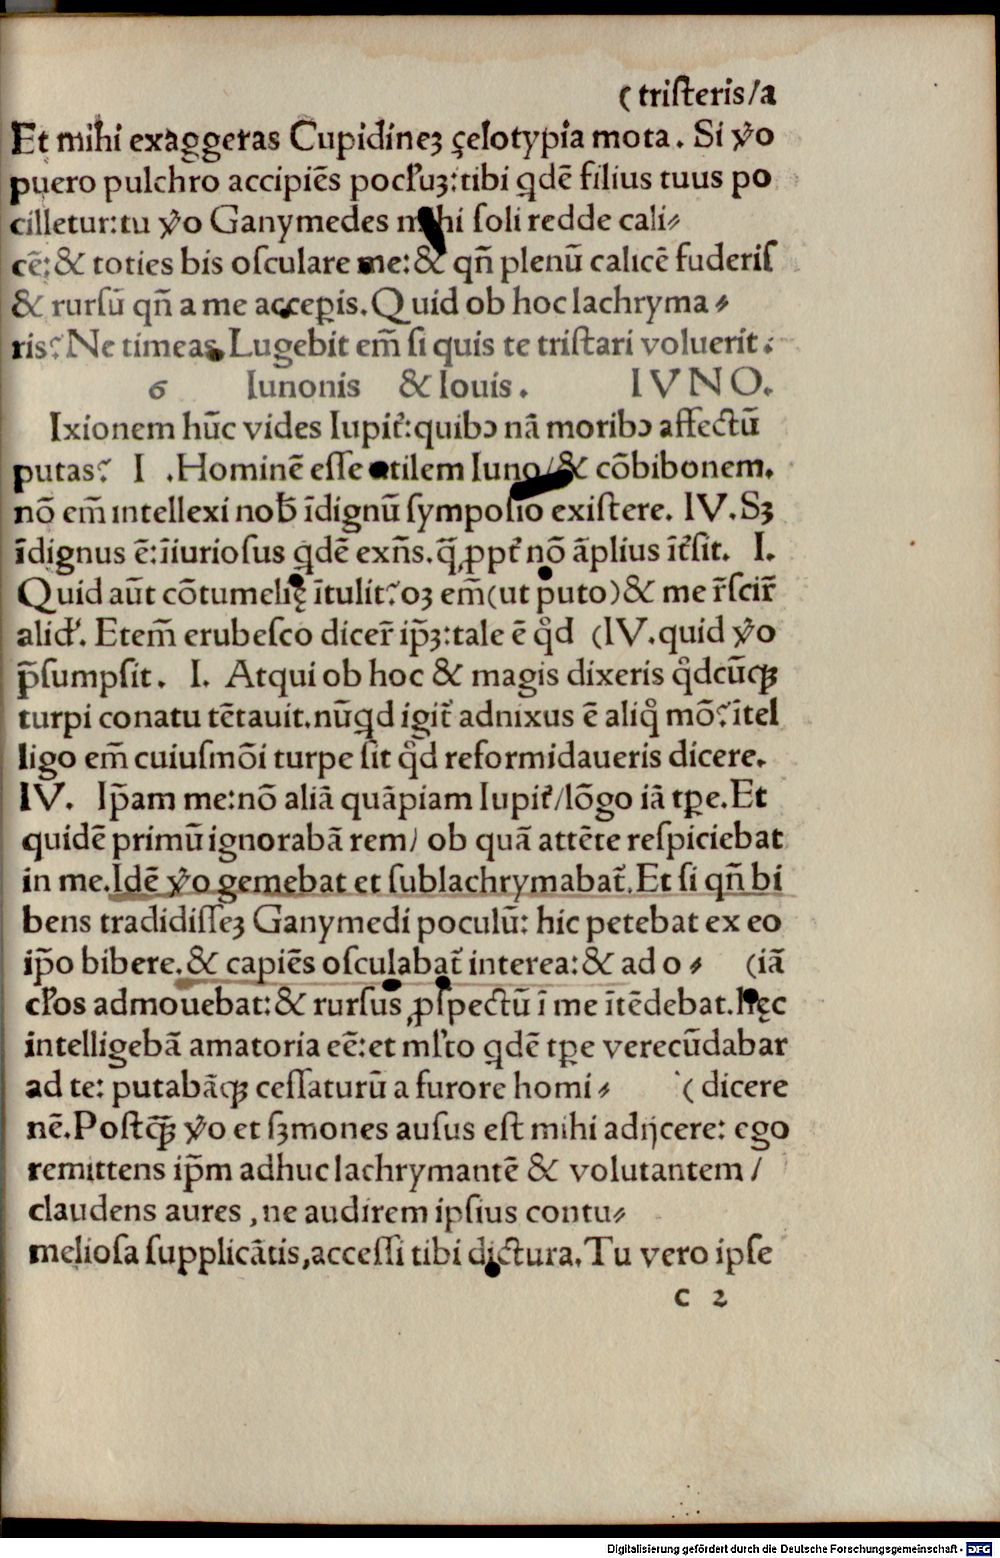 (triſteris/a
Et mihi exaggeras Cupidineꝫ çelotypia mota. Si ỽo
puero pulchro accipiēs pocl'uꝫ: tibi qdē filius tuus po
cilletur: tu ỽo Ganymedes mihi ſoli redde cali⸗
cē: & toties bis oſculare me: & qn̄ plenū calicē fuderiſ
& rurſū qn̄ a me acceꝑis. Quid ob hoc lachryma⸗
ris? Ne timeas. Lugebit em̄ ſi quis te triſtari voluerit.
6 Iunonis & Iouis. IVNO.
Ixionem hūc vides Iupit̄: quibꝰ nā moribꝰ affectū
putas? I. Hominē eſſe utilem Iuno/& cōbibonem.
nō em̄ intellexi nob̄ īdignū ſympoſio exiſtere. IV. Sꝫ
īdignus ē: īiurioſus qdē exn̄s. q̄ ꝓpt̄ nō āplius īt̄ſit. I.
Quid aūt cōtumelię ītulit? oꝫ em̄ (ut puto) & me r̄ſcir̄
alid'. Etem̄ erubeſco dicer̄ ip̄ꝫ: tale ē qͦd (IV. quid ỽo
p̄ſumpſit. I. Atqui ob hoc & magis dixeris qͦdcūqꝫ
turpi conatu tētauit. nūqd igit̄ adnixus ē aliqͦ mō? ītel
ligo em̄ cuiuſmōi turpe ſit qͦd reformidaueris dicere.
IV. Ip̄am me: nō aliā quāpiam Iupit̄/lōgo iā tꝑe. Et
quidē primū ignorabā rem/ ob quā attēte reſpiciebat
in me. Idē ỽo gemebat et ſublachrymabat̄. Et ſi qn̄ bi
bens tradidiſſeꝫ Ganymedi poculū: hic petebat ex eo
ip̄o bibere. & capiēs oſculabat̄ interea: & ad o⸗ (iā
cl'os admouebat: & rurſus ꝓſpectū ī me ītēdebat. Hęc
intelligebā amatoria eē: et ml'to qdē tꝑe verecūdabar
ad te: putabāqꝫ ceſſaturū a furore homi⸗ (dicere
nē. Poſtqꝫ̄ ỽo et ſꝫmones auſus eſt mihi adijcere: ego
remittens ip̄m adhuc lachrymantē & volutantem/
claudens aures, ne audirem ipſius contu⸗
melioſa ſupplicātis, acceſſi tibi dictura. Tu vero ipſe
c 2
Digitalisierung gefördert durch die Deutsche Forschungsgemeinschaft - DFG